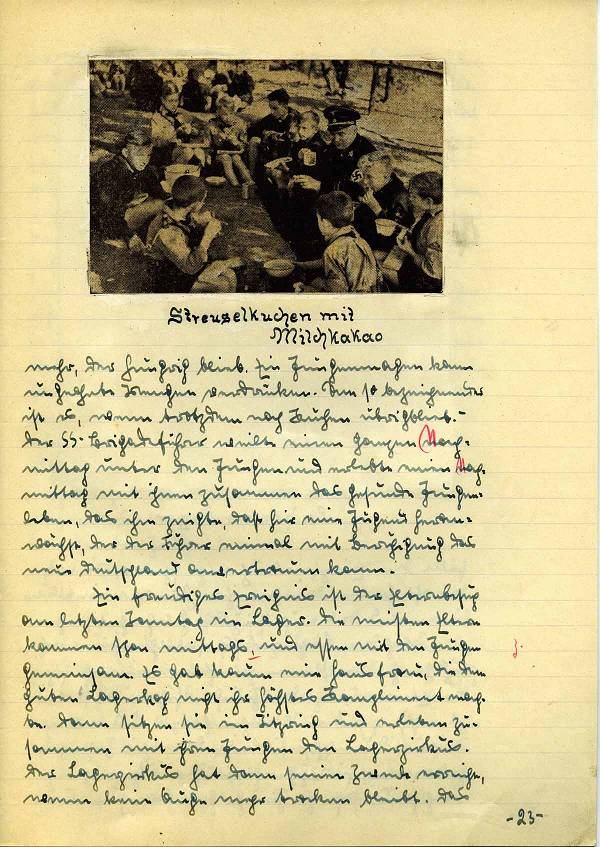 Streuselkuchen mit
Milchkakao
mehr, der hungrig blieb. Ein Jungenmagen kann
ungeahnte Mengen verdrücken. Um so bezeichnender
ist es, wenn trotzdem noch Kuchen übrigblieb. -
Der SS-Brigadeführer weilte einen ganzen Nach-
mittag unter den Jungen und erlebte einen Nach-
mittag mit ihnen zusammen das gesunde Jungen-
leben, das ihm zeigte, daß hier eine Jugend heran-
wächst, der der Führer einmal mit Beruhigung das
neue Deutschland anvertrauen kann.
Ein freudiges Ereignis ist der Elternbesuch
am letzten Sonntag im Lager. Die meisten Eltern
kommen schon mittags, und essen mit den Jungen
gemeinsam. Es gab kaum eine Hausfrau, die dem
guten Lagerkoch nicht ihr höchstes Kompliment mach-
te. Dann sitzen sie im Sitzkreis und erleben zu-
sammen mit ihren Jungen den Lagerzirkus.
Der Lagerzirkus hat dann seinen Zweck erreicht,
wenn kein Auge mehr trocken bleibt. Das
-23-